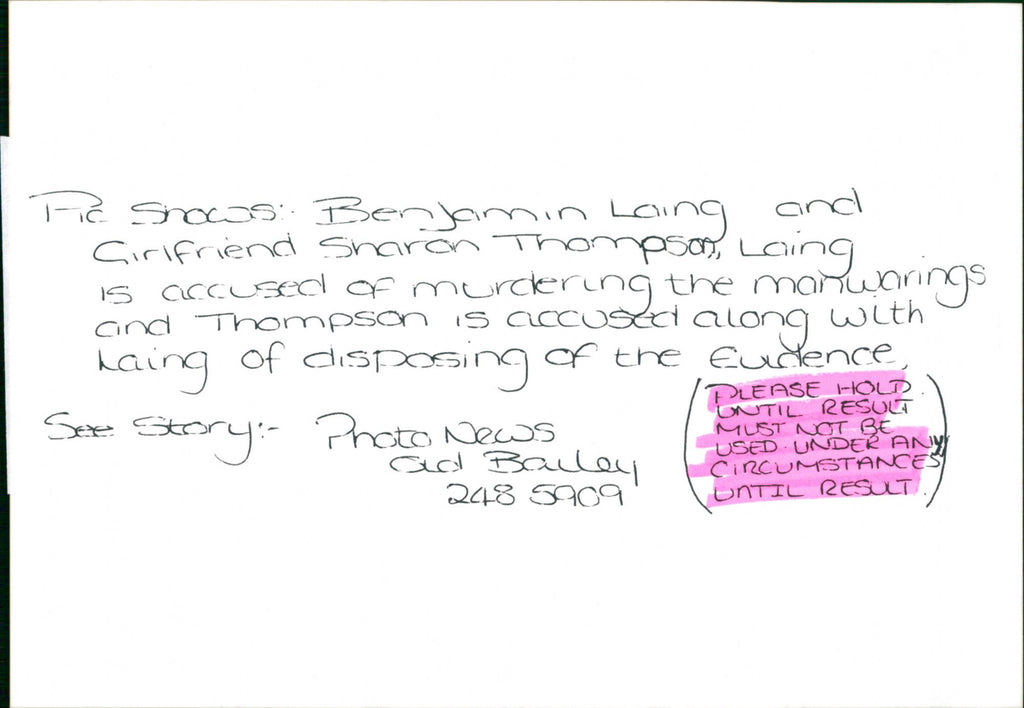 Pic Shows:- Benjamin Laing and
Girlfriend Sharon Thompson, Laing
is accused of murdering the manwarings
and Thompson is accused along with
Laing of disposing of the Evidence.
(PLEASE HOLD.
UNTIL RESULT
MUST NOT BE
USED. UNDER ANY
CIRCUMSTANCES
UNTIL RESULT.)
See Story:- Photo News
Old Bailey
248 5909